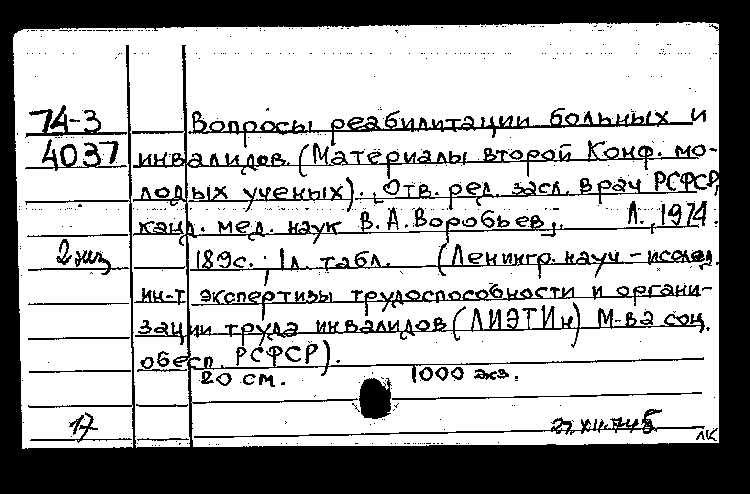 74-3 Вопросы реабилитации больных и
4037 инвалидов. (Материалы второй Конф. мо-
лодых ученых). Отв. ред. засл. врач РСФСР,
канд. мед. наук В.А. Воробьев. Л., 1974.
2 экз 189с.; 1л. табл. (Ленингр. науч-исслед.
ин-т экспертизы трудоспособности и органи-
зации труда инвалидов (ЛИЭТИн) М-ва соц.
обесп. РСФСР).
20 см. 1000 экз.
17
ЛК